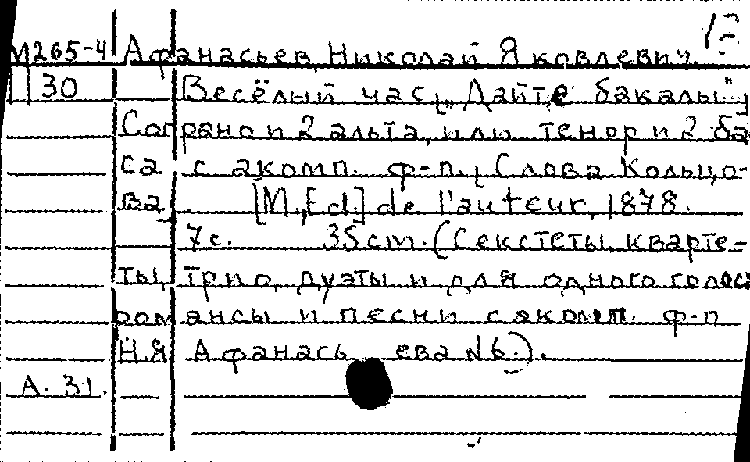 М265-4 Афанасьев, Николай Яковлевич.
П30 Весёлый час ["Дайте бакалы"]
Сопрано и 2 альта, или тенор и 2 ба-
са с акомп. ф-п. [Слова Кольцо-
ва]. [М., Ed.] de l'auteur, 1878.
7с. 35cm. (Секстеты, кварте-
ты, трио, дуэты и для одного голоса
романсы и песни с акомп. ф-п
Н.Я Афанасьева №6.).
А. 31.